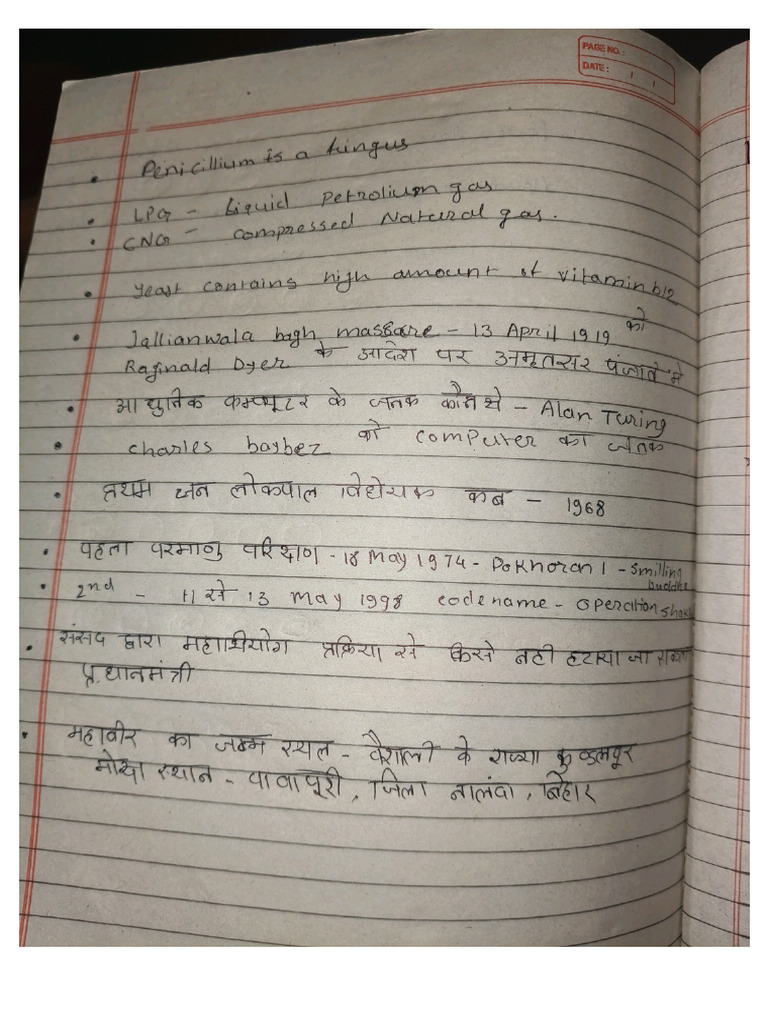 PAGE NO.:
DATE: / /
Penicillium is a fungus
LPG - Liquid Petrolium gas
CNG - Compressed Natural gas.
Yeast contains high amount of vitamin b12
Jallianwala bagh massare - 13 April 1919 को
Raginald Dyer के आदेश पर अमृतसर पंजाब मे
आधुनिक कम्प्यूटर के जनक कौन थे - Alan Turing
charles baybez को computer का जनक
प्रथम जन लोकपाल विधेयक कब - 1968
पहला परमाणु परिक्षण - 18 May 1974 - Pokhoran 1 - Smilling
buddha
2nd - 11 से 13 May 1998 codename - operation
संसद द्वारा महाभियोग प्रक्रिया से किसे नही हटाया जा सकता
प्रधानमंत्री
महावीर का जन्म स्थल - वैशाली के राज्य कुण्डलपूर
मोक्ष स्थान - पावापूरी, जिला नालंदा, बिहार